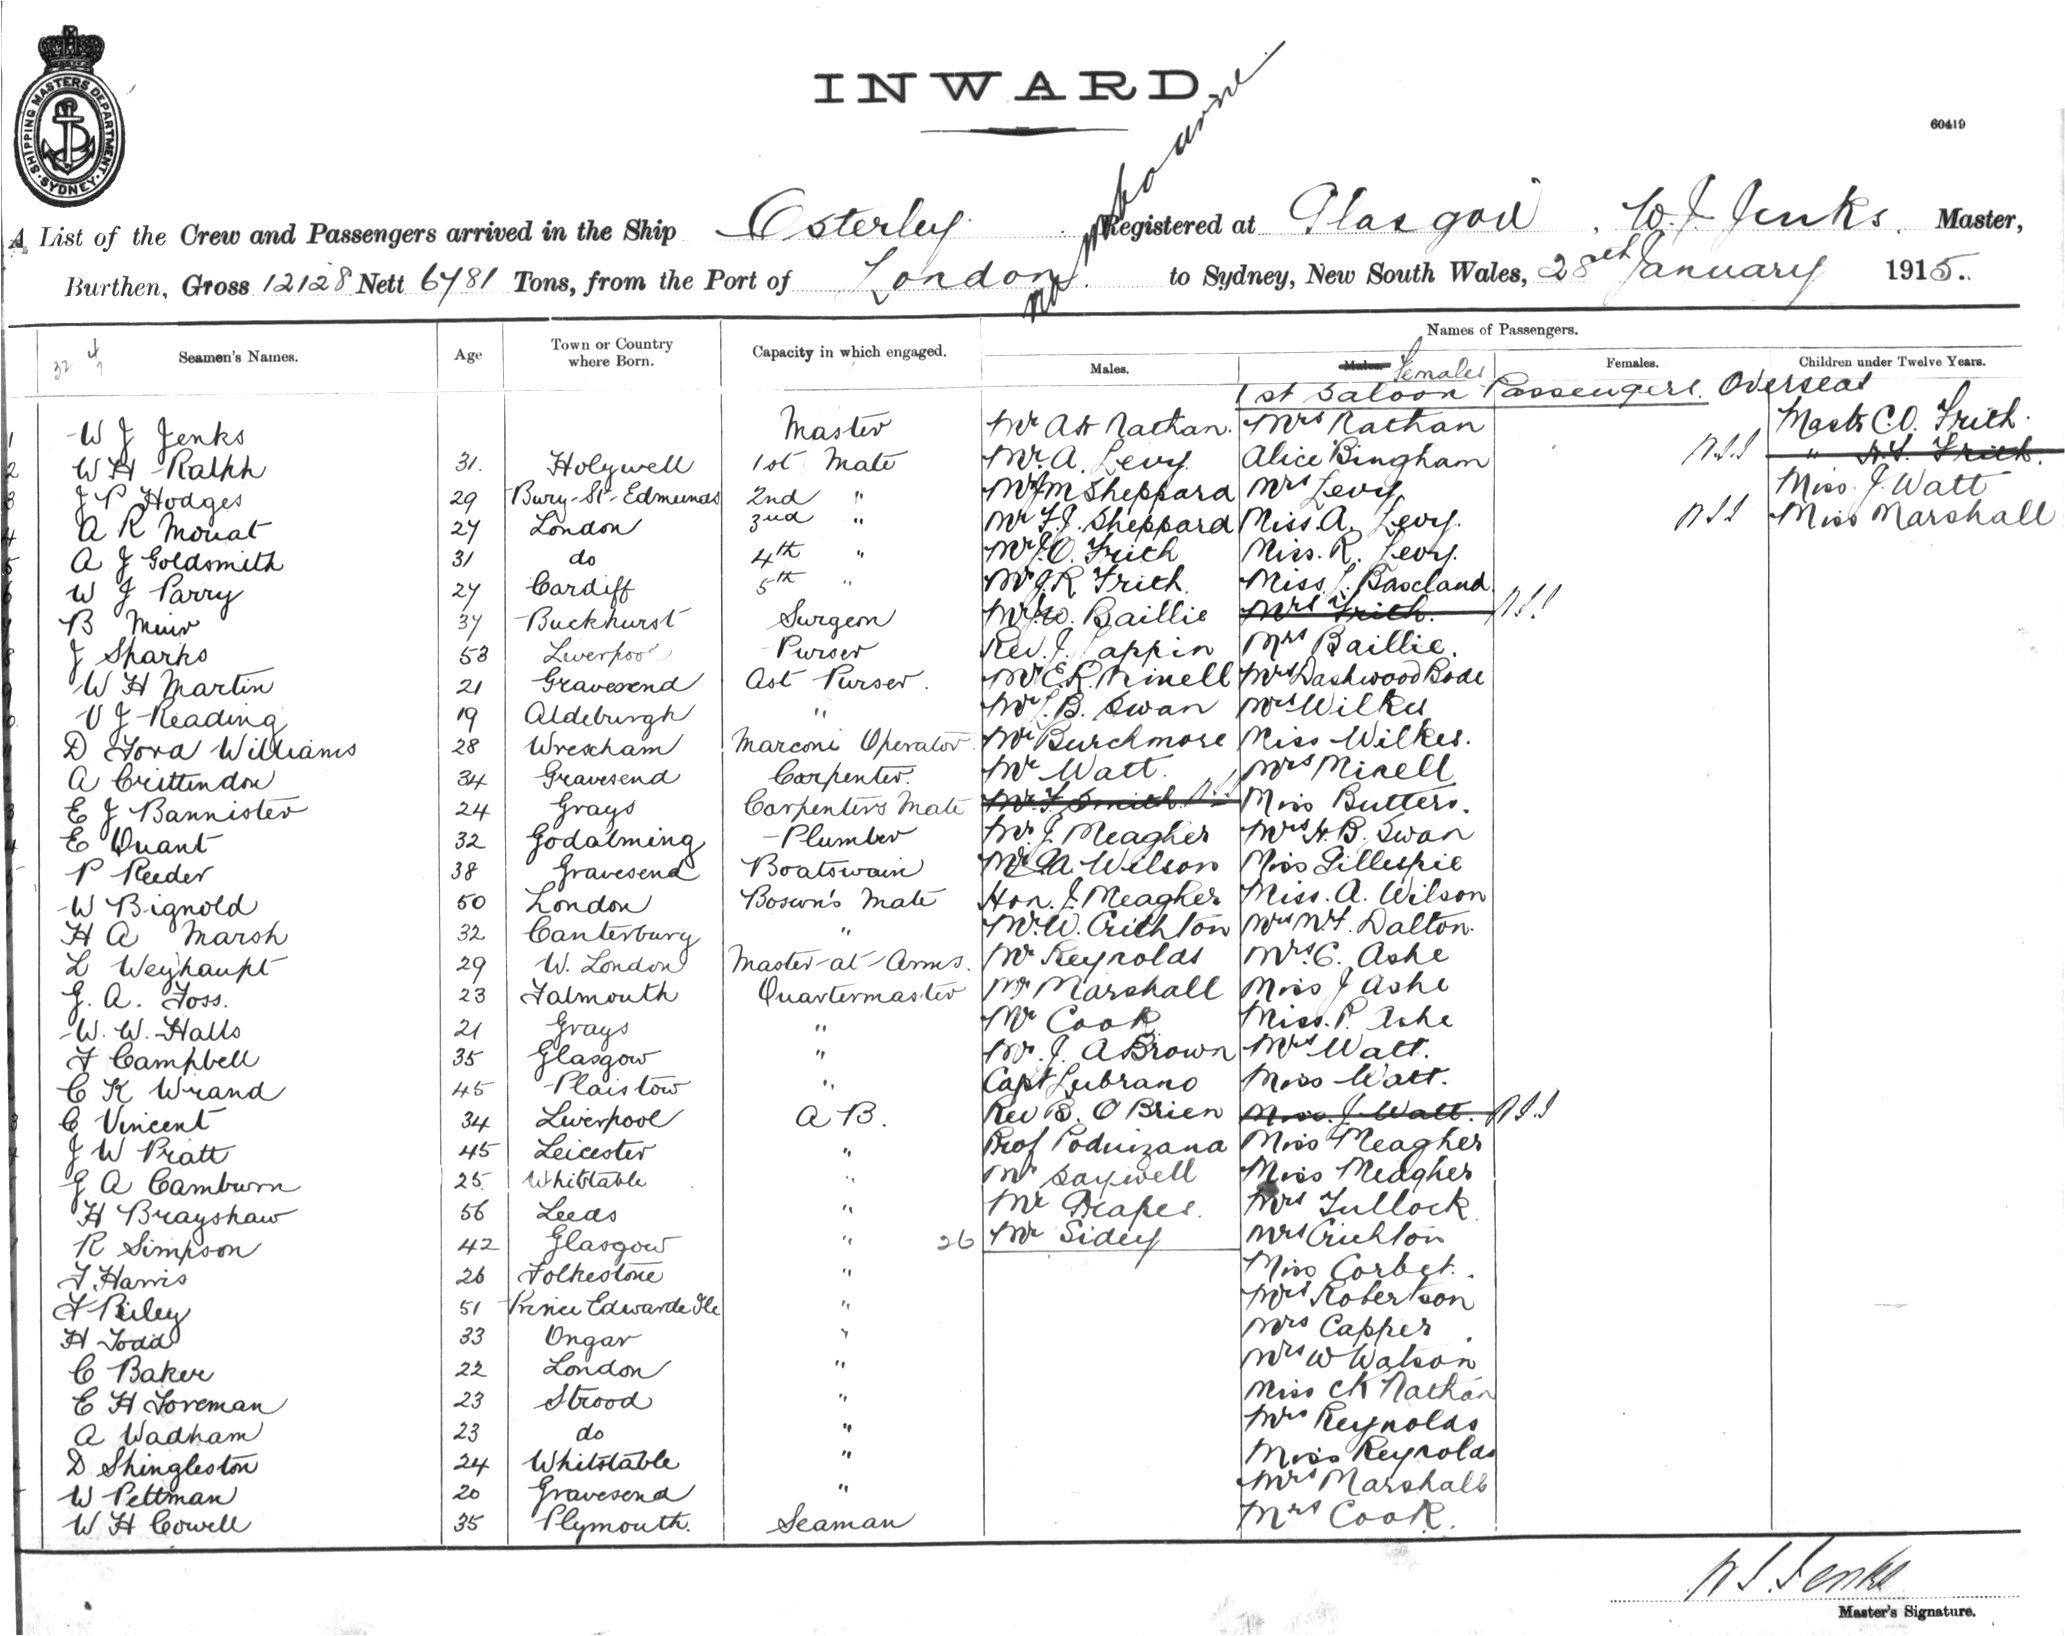 SHIPPING MASTERS DEPARTMENT. SYDNEY.
INWARD.
60419
A List of the Crew and Passengers arrived in the Ship Osterley Registered at Glasgow, W. J. Jenks, Master,
Burthen, Gross 12128 Nett 6781 Tons, from the Port of London to Sydney, New South Wales, 28th January 1915.
Names of Passengers.
32 Seamen's Names. Age Town or Country where Born. Capacity in which engaged. Males. Males. Females Females. Children under Twelve Years.
1st Saloon Passengers. Overseas
1 W J Jenks Master Mr A H Nathan. Mrs Nathan Mastr C O. Frith.
2 W H Ralph 31. Holywell 1st Mate Mr. A. Levy. Alice Bingham " Frith.
3 J P Hodges 29 Bury-St-Edmunds 2nd " Mr J M Sheppard Mrs Levy. Miss. J. Watt
4 A R Mouat 27 London 3rd " Mr F. J. Sheppard Miss. A. Levy. Miss Marshall
5 A J Goldsmith 31 do 4th " Mr J. O. Frith Miss. R. Levy.
6 W J Parry 27 Cardiff 5th " Mr J. R. Frith. Miss.
B Muir 37 Buckhurst Surgeon Baillie Mrs Frith.
8 J Sparks 53 Liverpool Purser Rev. J. Tappin Mrs Baillie.
9 W H Martin 21 Gravesend Ast Purser. Mr E. R. Minell Mrs Dashwood Bode
V J Reading 19 Aldeburgh " B. Swan Mrs Wilkes
D Ford Williams 28 Wrexham Marconi Operator Mr Burchmore Miss Wilkes.
A Crittendon 34 Gravesend Carpenter. Mr Watt. Mrs Minell
3 E J Bannister 24 Grays Carpenters Mate Mr. F. Smith. Miss Butters.
4 E Quant 32 Godalming Plumber Mr. J. Meagher Mrs H. B. Swan
P Reeder 38 Gravesend Boatswain Wilson Miss Gillespie
W Bignold 50 London Boswn's Mate Hon. J. Meagher Miss. A. Wilson
H A Marsh 32 Canterbury " Mr. W. Crichton Dalton.
L Weyhaupt 29 W. London Master-at-Arms. Mr Reynolds Mrs. C. Ashe
G. A. Foss. 23 Falmouth Quartermaster Mr Marshall Miss J Ashe
W. W. Halls 21 Grays " Mr Cook Miss. P. Ashe
F Campbell 35 Glasgow " Mr. J. A Brown Mrs Watt.
C K Wrand 45 Plaistow " Capt Lubrano Miss Watt.
C Vincent 34 Liverpool A B. Rev B. O'Brien Miss. J. Watt.
J W Pratt 45 Leicester " Prof Miss Meagher
G A Camburn 25. Whitstable " Mr Saywell Miss Meagher
H Brayshaw 56 Leeds " Mr Drapes. Mrs Tullock
R Simpson 42 Glasgow " 26 Mr Sidey Mrs Crichton
F. Harris 26 Folkestone " Miss Corbet.
F Riley 51 Prince Edwarde Ile " Mrs Robertson
H Todd 33 Ongar " Mrs Capper
C Baker 22 London " Mrs W Watson
E H Foreman 23 Strood " Miss CK Nathan
A Wadham 23 do " Mrs Reynolds
D Shingleston 24 Whitstable " Miss Reynolds
W Pettman 20 Gravesend " Mrs Marshall
W H Cowell 35 Plymouth. Seaman Mrs Cook.
W J. Jenks
Master's Signature.